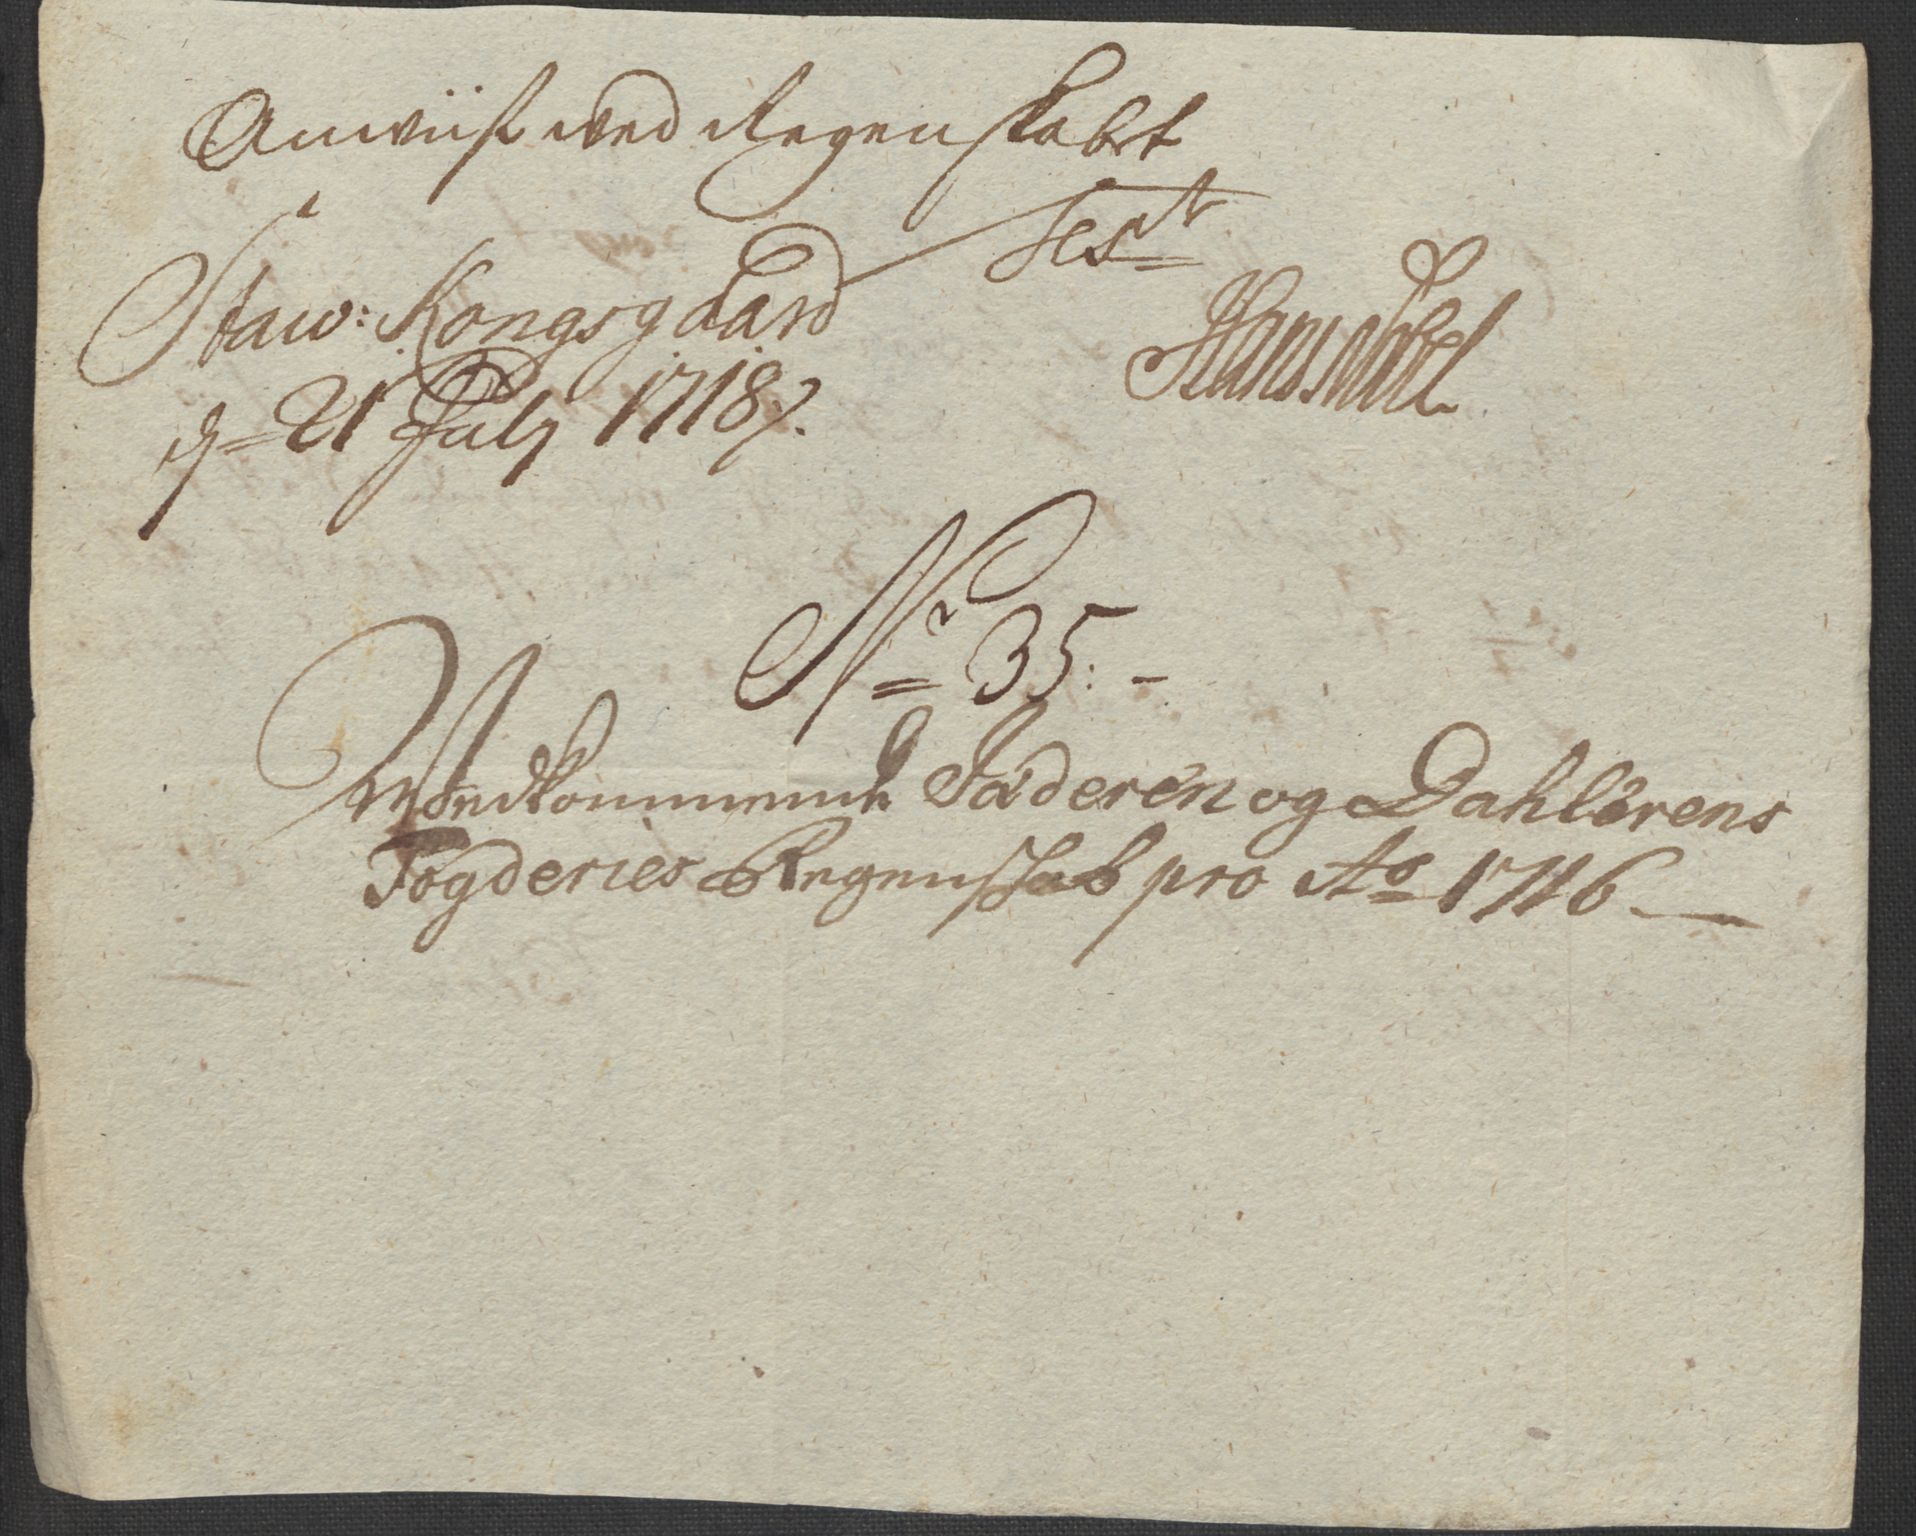 Anwiist wed Regenskabet
Test
Staw: Kongsgaard
d. 21 July 1718.
Hans Nobel
No 35: -
Wedkommende Jæderen og Dahlerens
Fogderies Regenskab pro Ao 1716